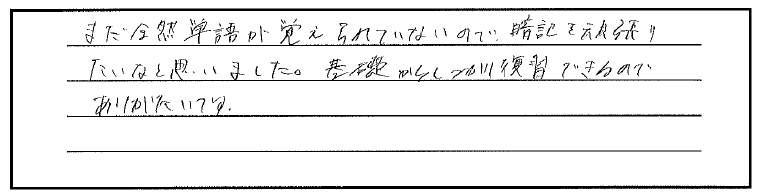 まだ全然単語が覚えられていないので暗記を頑張り
たいなと思いました。基礎からしっかり復習できるので
ありがたいです.